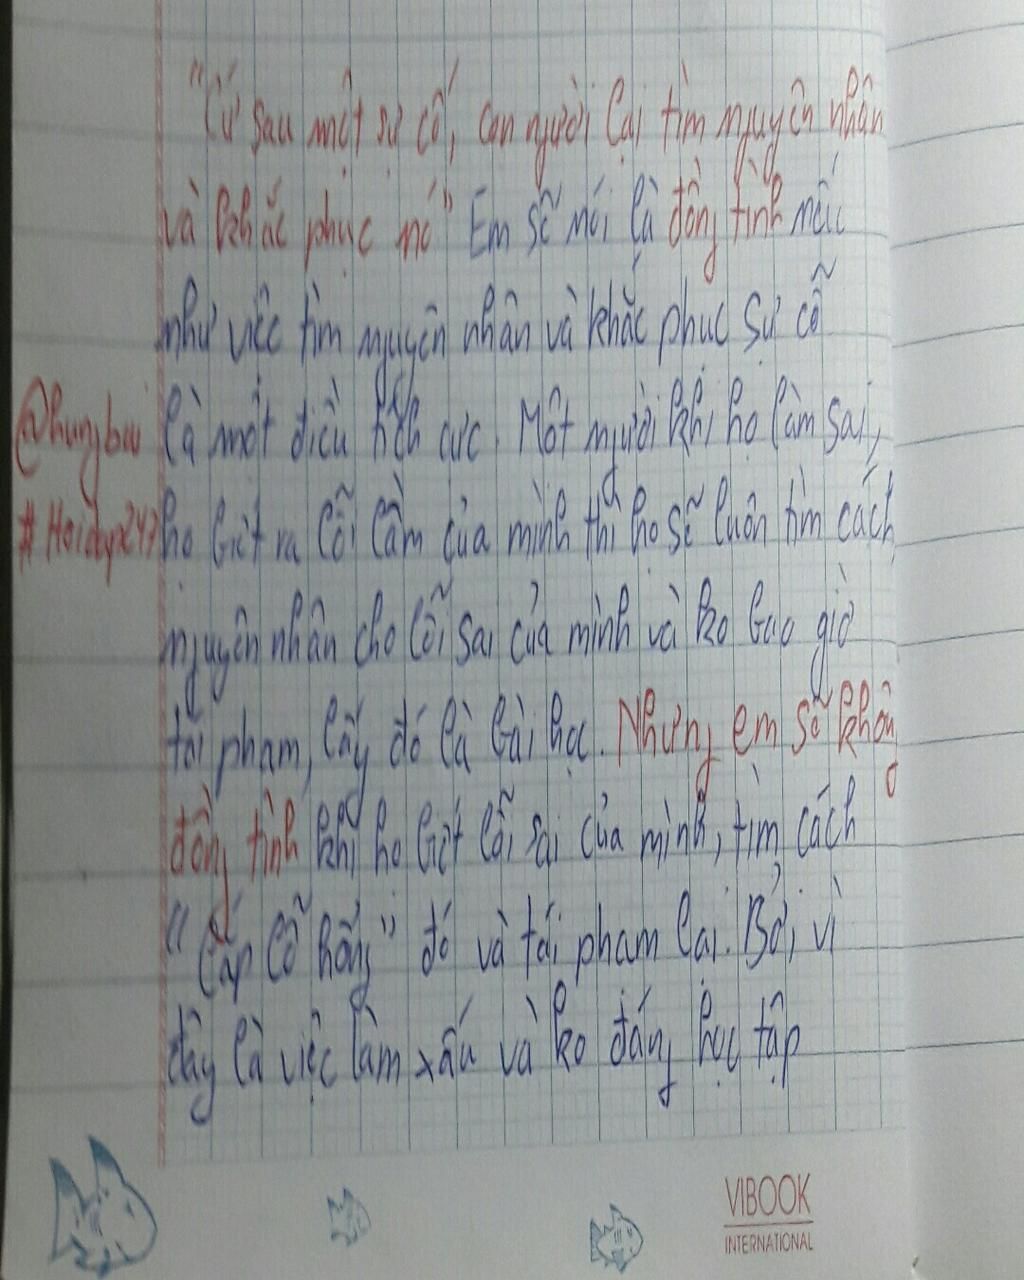 "Cứ sau một sự cố, con người lại tìm nguyên nhân
và khắc phục nó" Em sẽ nói là đồng tình nếu
như việc tìm nguyên nhân và khắc phục sự cỗ
là một điều tích cực. Một người khi họ làm sai,
@hungbui
họ biết ra lỗi lầm của mình thì họ sẽ luôn tìm cách
#Hoidap247
nguyên nhân cho lỗi sai của mình và ko bao giờ
tái phạm, lấy đó là bài học. Nhưng em sẽ không
đồng tình khi họ biết lỗi sai của mình, tìm cách
"lấp lỗ hổng" đó và tái phạm lại. Bởi vì
đây là việc làm xấu và ko đáng học tập
VIBOOK
INTERNATIONAL